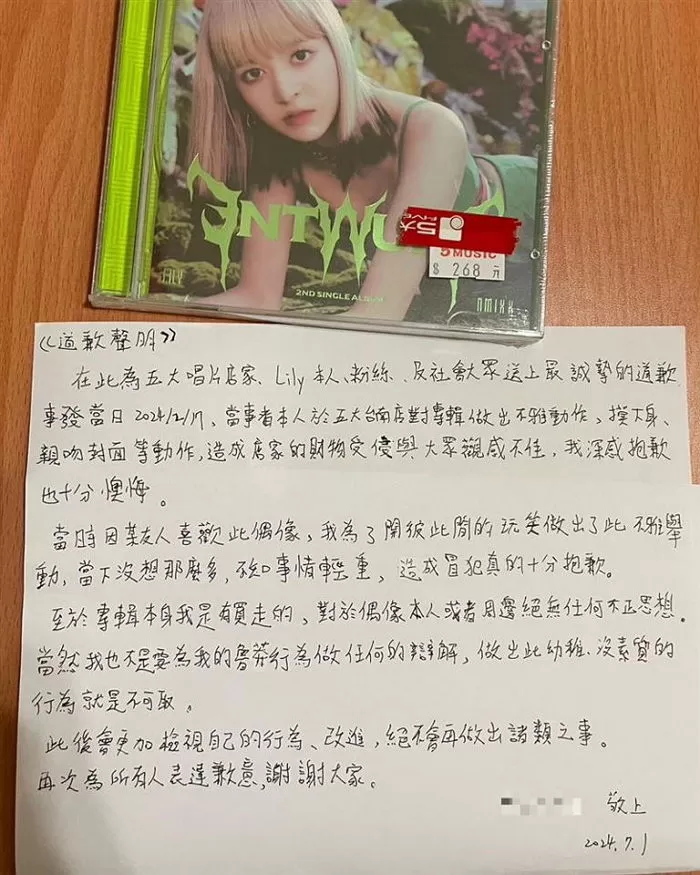 ENTWURF
LILY
五大
FIVE
5 MUSIC
$ 268 元
2ND SINGLE ALBUM
NMIXX
《道歉聲明》
在此為五大唱片店家、Lily本人、粉絲、及社會大眾送上最誠摯的道歉
事發當日2024/2/17,當事者本人於五大台南店對專輯做出不雅動作、摸下身、
親吻封面等動作,造成店家的財物受侵與大眾觀感不佳,我深感抱歉
也十分懊悔。
當時因某友人喜歡此偶像,我為了開彼此間的玩笑做出了此不雅舉
動,當下沒想那麼多,不知事情輕重,造成冒犯真的十分抱歉。
至於專輯本身我是有買走的,對於偶像本人或者周邊絕無任何不正思想。
當然我也不是要為我的魯莽行為做任何的辯解,做出此幼稚、沒素質的
行為就是不可取。
此後會更加檢視自己的行為、改進,絕不會再做出諸類之事。
再次為所有人表達歉意,謝謝大家。
敬上
2024.7.1